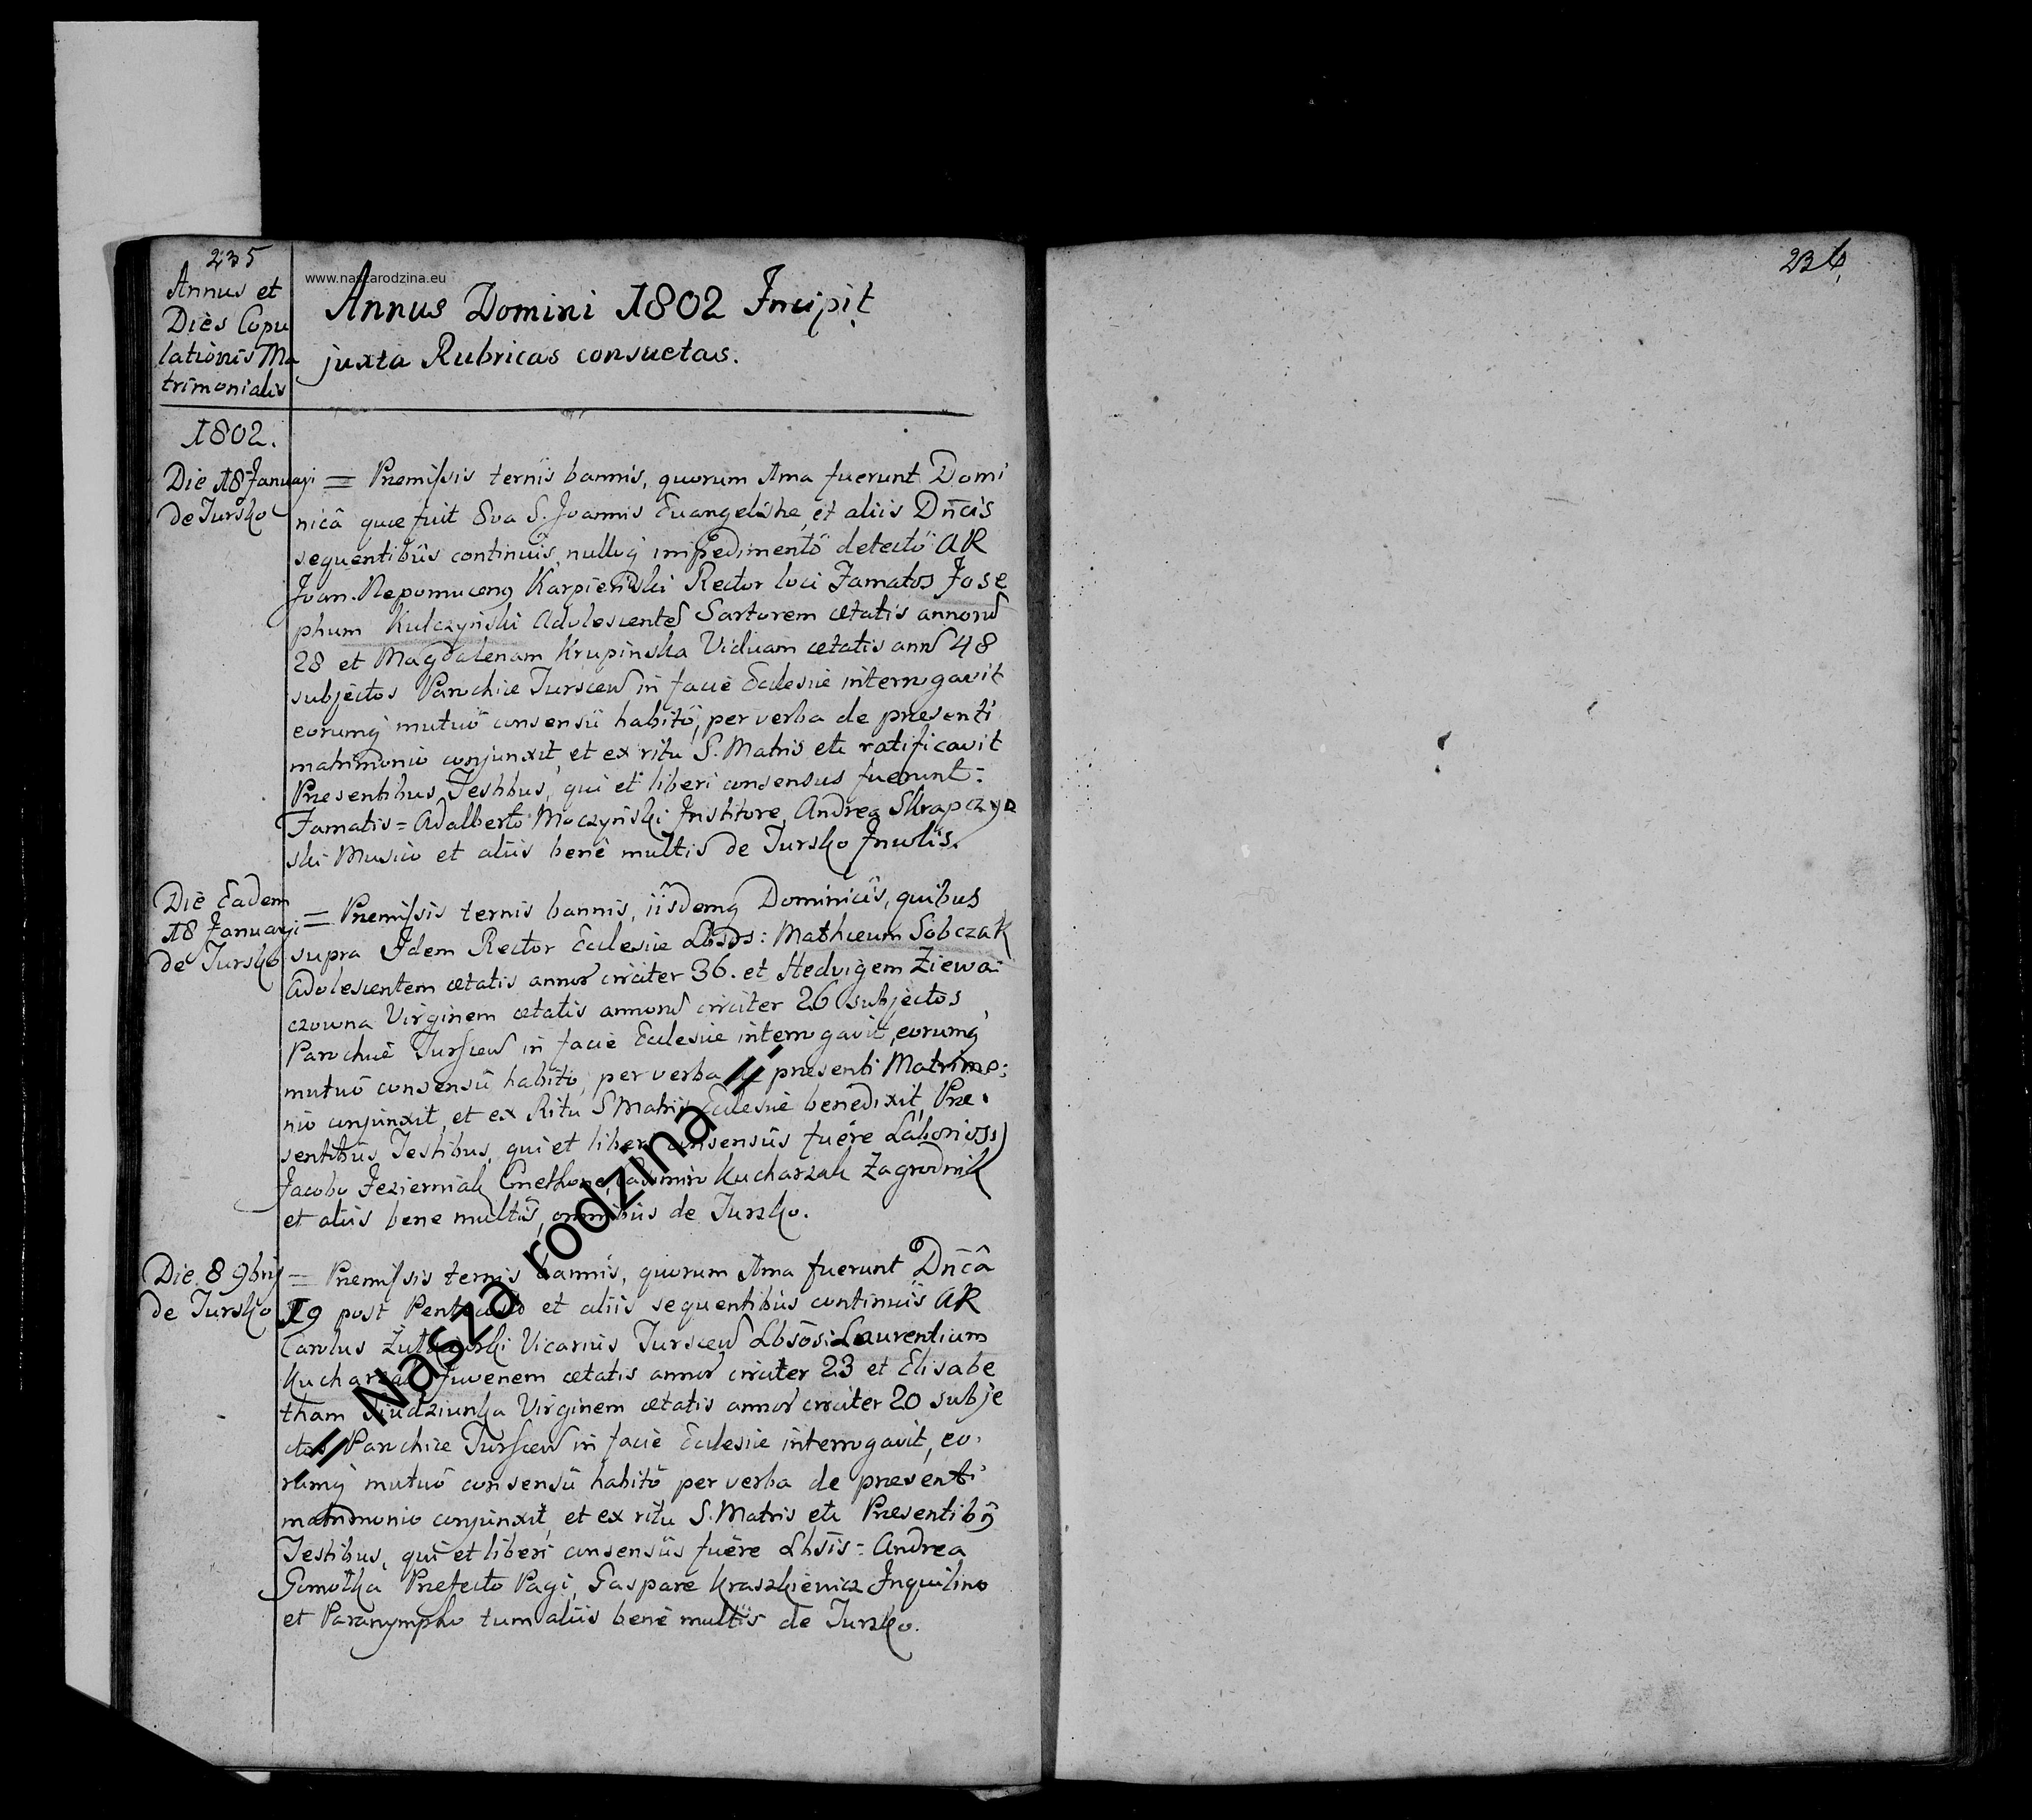 235
Annus et
Dies Copu
lationis Ma
trimonialis
www.naszarodzina.eu
Annus Domini 1802 Incipit
juxta Rubricas consuetas.
1802.
Die 18 Januarji
de Tursko
= Premissis ternis bannis, quorum 1ma fuerunt Domi
nicâ quæ fuit S. Joannis Evangelistæ, et aliis Dn̄cis
sequentibus continuis, nulloq impedimentô detectô AR
Joan. Nepomuceng Karpieński Rector loci Famatos Jose
phum Kulczyński Adolescentem Sartorem ætatis annorum
28 et Magdalenam Krupinska Viduam ætatis ann 48
subjectos Parochiæ Turscens in faciê Ecclesiæ interrogavit
eorumq mutuô consensû habitô, per verba de præsenti
matrimonio conjunxit, et ex ritu S. Matris etc ratificavit
Præsentibus Testibus, qui et liberi consensus fuerunt =
Famatis = Adalberto Moczyński Institore, Andrea Skrapczyn
ski Musico et aliis benê multis de Tursko Incolis.
Die Eadem
18 Januarji
de Tursko
= Premissis ternis bannis, iisdemq Dominicis, quibus
supra Idem Rector Ecclesiæ Lbsos: Mathæum Sobczak
Adolescentem ætatis annor circiter 36. et Hedvigem Ziewa-
czowna Virginem ætatis annorum circiter 26 subjectos
Parochiæ Turscens in faciê Ecclesiæ interrogavit, eorumq
mutuô consensû habitô, per verba de præsenti Matrimo:
nio conjunxit, et ex Ritu S Matris Ecclesiæ benedixit, Præ.
sentibus Testibus, qui et liberi consensûs fuêre Laborioss
Jacobo Jezierniak Cmethone, Casimiro Kucharzak Zagrodnik
et aliis bene multis, omnibus de Tursko.
Die 8 9bris
de Tursko
= Premissis ternis bannis, quorum 1ma fuerunt Dn̄câ
19 post Pentecost et aliis sequentibus continuis AR
Carolus Vicarius Turscens Lbsos: Laurentium
Kucharzak Juvenem ætatis annor circiter 23 et Elisabe
tham Siudziunka Virginem ætatis annor circiter 20 subje
ctos Parochiæ Turscens in faciê Ecclesiæ interrogavit, eo.
rumq mutuô consensû habitô per verba de præsenti
matrimonio conjunxit, et ex ritu S. Matris etc Præsentibq
Testibus, qui et liberi consensûs fuêre Lbsis = Andrea
Gomołka Præfecto Pagi, Gaspare Kraszkiewicz Inquilino
et Paranympho tum aliis benê multis de Tursko.
// Nasza rodzina //
236